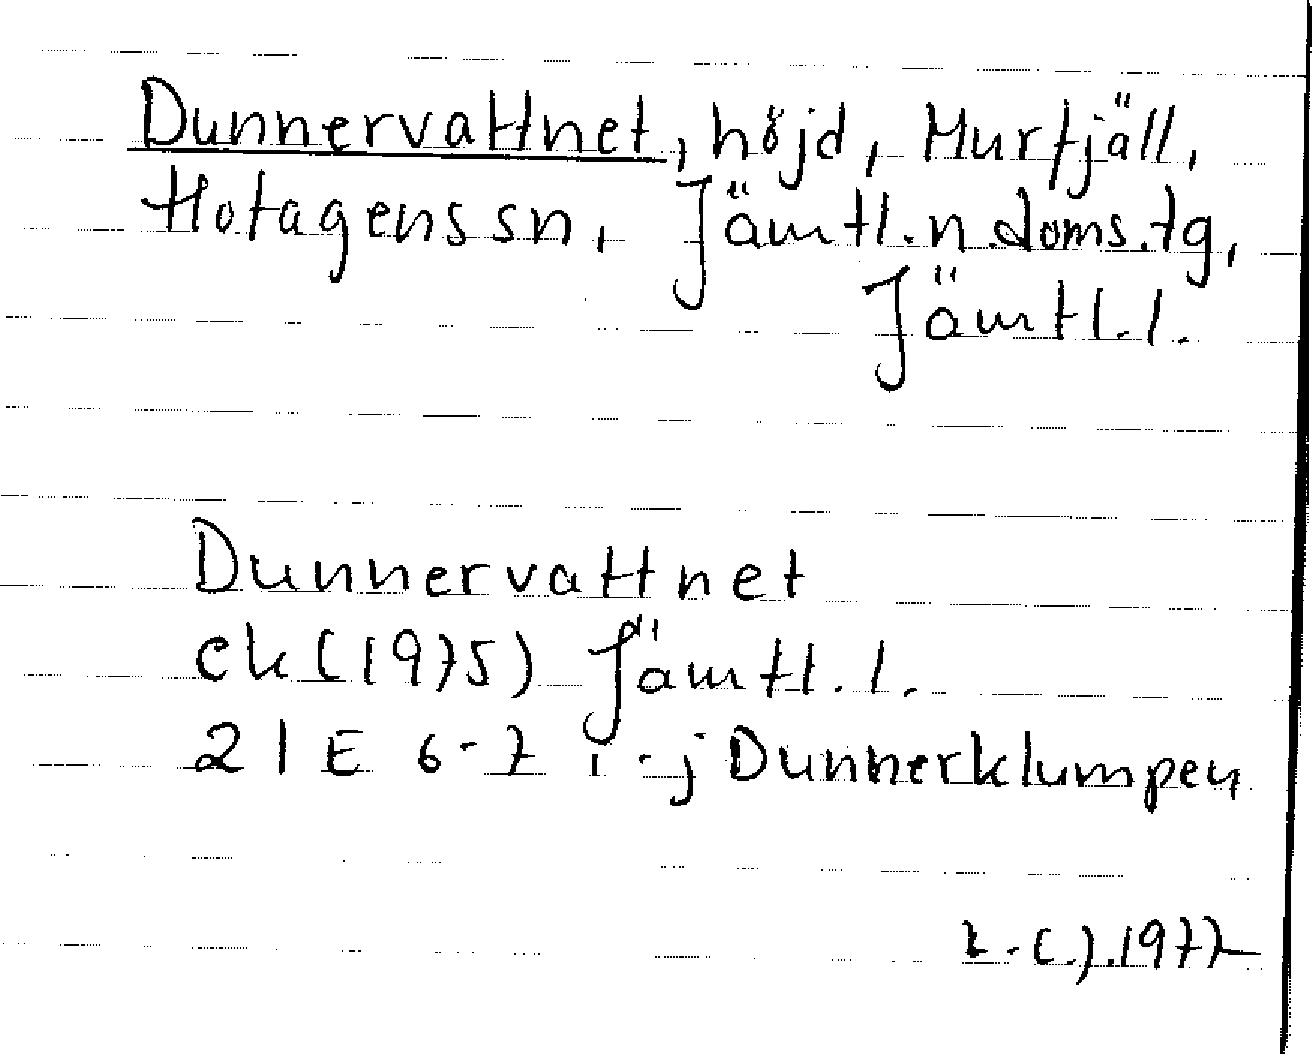 Dunnervattnet, höjd, Murfjäll,
Hotagens sn, Jämtl.n.doms.tg,
Jämtl.l.
Dunnervattnet
ek (1975) Jämtl.l.
21E 6-7 i-j Dunnerklumpen
1977